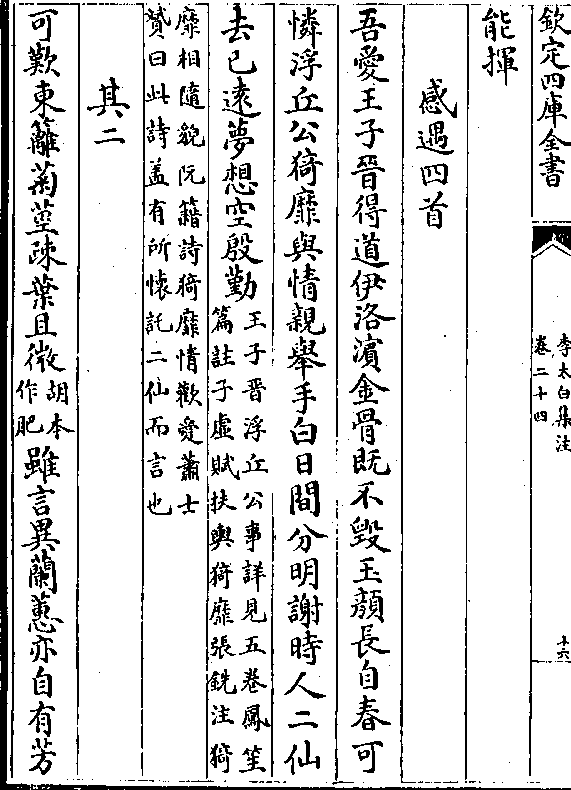 欽定四庫全書
李太白集注
卷二十四
十六
能揮
感遇四首
吾愛王子晉得道伊洛濵金骨既不毀玉顔長自春可
憐浮丘公猗靡與情親舉手白日間分明謝時人二仙
去已逺夢想空殷勤
王子晉浮丘公事詳見五卷鳳笙
篇註子虛賦扶輿猗靡張銑注猗
靡相隨貌阮籍詩猗靡情歡愛蕭士
贇曰此詩盖有所懐託二仙而言也
其二
可歎東籬菊莖疎葉且微
胡本
作肥
雖言異蘭蕙亦自有芳